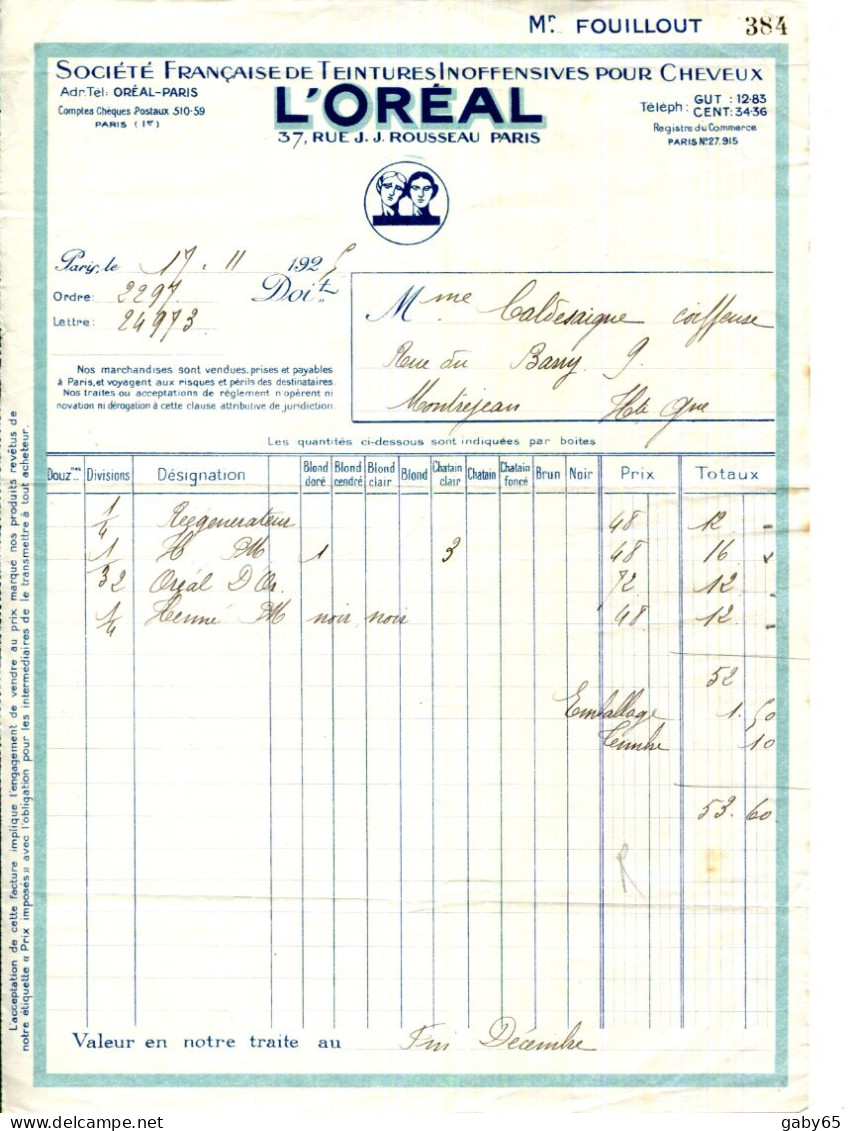 Mr. FOUILLOUT 384
SOCIÉTÉ FRANÇAISE DE TEINTURES INOFFENSIVES POUR CHEVEUX
Adr. Tél: ORÉAL-PARIS
Comptes Chèques Postaux 510-59
PARIS (1er)
L'ORÉAL
37, RUE J. J. ROUSSEAU PARIS
Téléph: GUT : 12-83
CENT: 34-36
Registre du Commerce
PARIS No 27.915
Paris, le 17 . 11 192
Ordre: 2297
Lettre: 24973
Doit
Mme Caldesaigue coiffeuse
Rue du Barry 9.
Montréjeau Hte Gne
Nos marchandises sont vendues, prises et payables
à Paris, et voyagent aux risques et périls des destinataires.
Nos traites ou acceptations de règlement n'opèrent ni
novation ni dérogation à cette clause attributive de juridiction.
Les quantités ci-dessous sont indiquées par boîtes
Douz.nes Divisions Désignation Blond doré Blond cendré Blond clair Blond Chatain clair Chatain Chatain foncé Brun Noir Prix Totaux
1/4 Régénérateur 48 12 -
1/ H M 1 3 48 16
32 Oréal D'Or. 72 12 -
1/4 Henné M noir noir 48 12 -
52
Emballage 1. 50
Timbre 10
53. 60
Valeur en notre traite au Fin Décembre
L'acceptation de cette facture implique l'engagement de vendre au prix marque nos produits revêtus de
notre étiquette « Prix imposés » avec l'obligation pour les intermediaires de le transmettre à tout acheteur.
gaby65